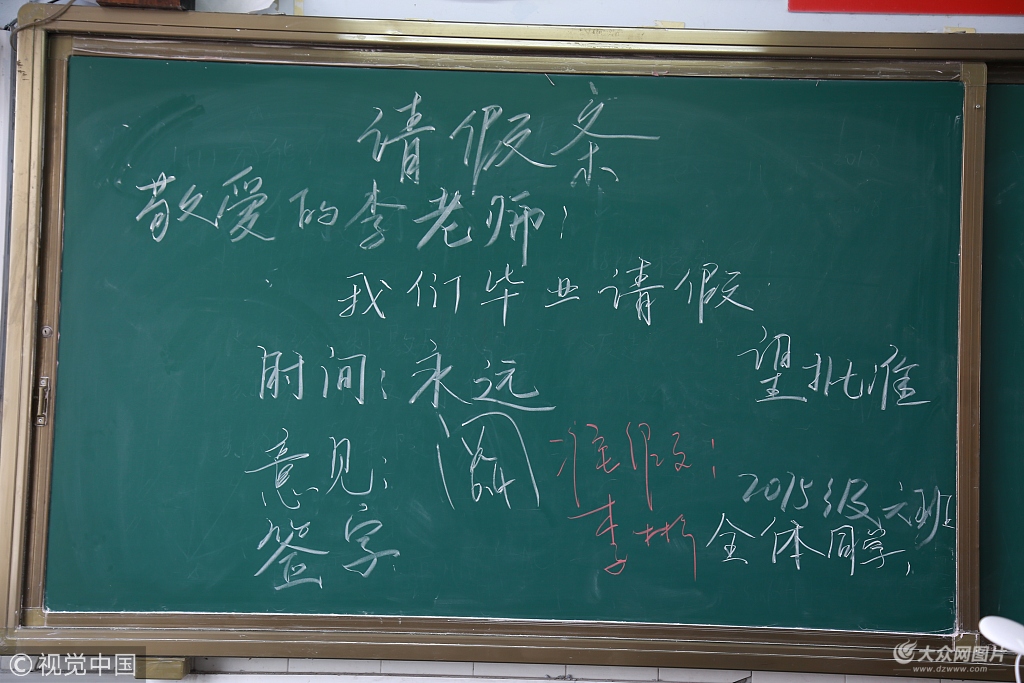 请假条
敬爱的李老师：
我们毕业请假
时间：永远
望批准
意见：阅
准假：
李彬
2015级六班
签字
全体同学
© 视觉中国
大众网图片
www.dzwww.com